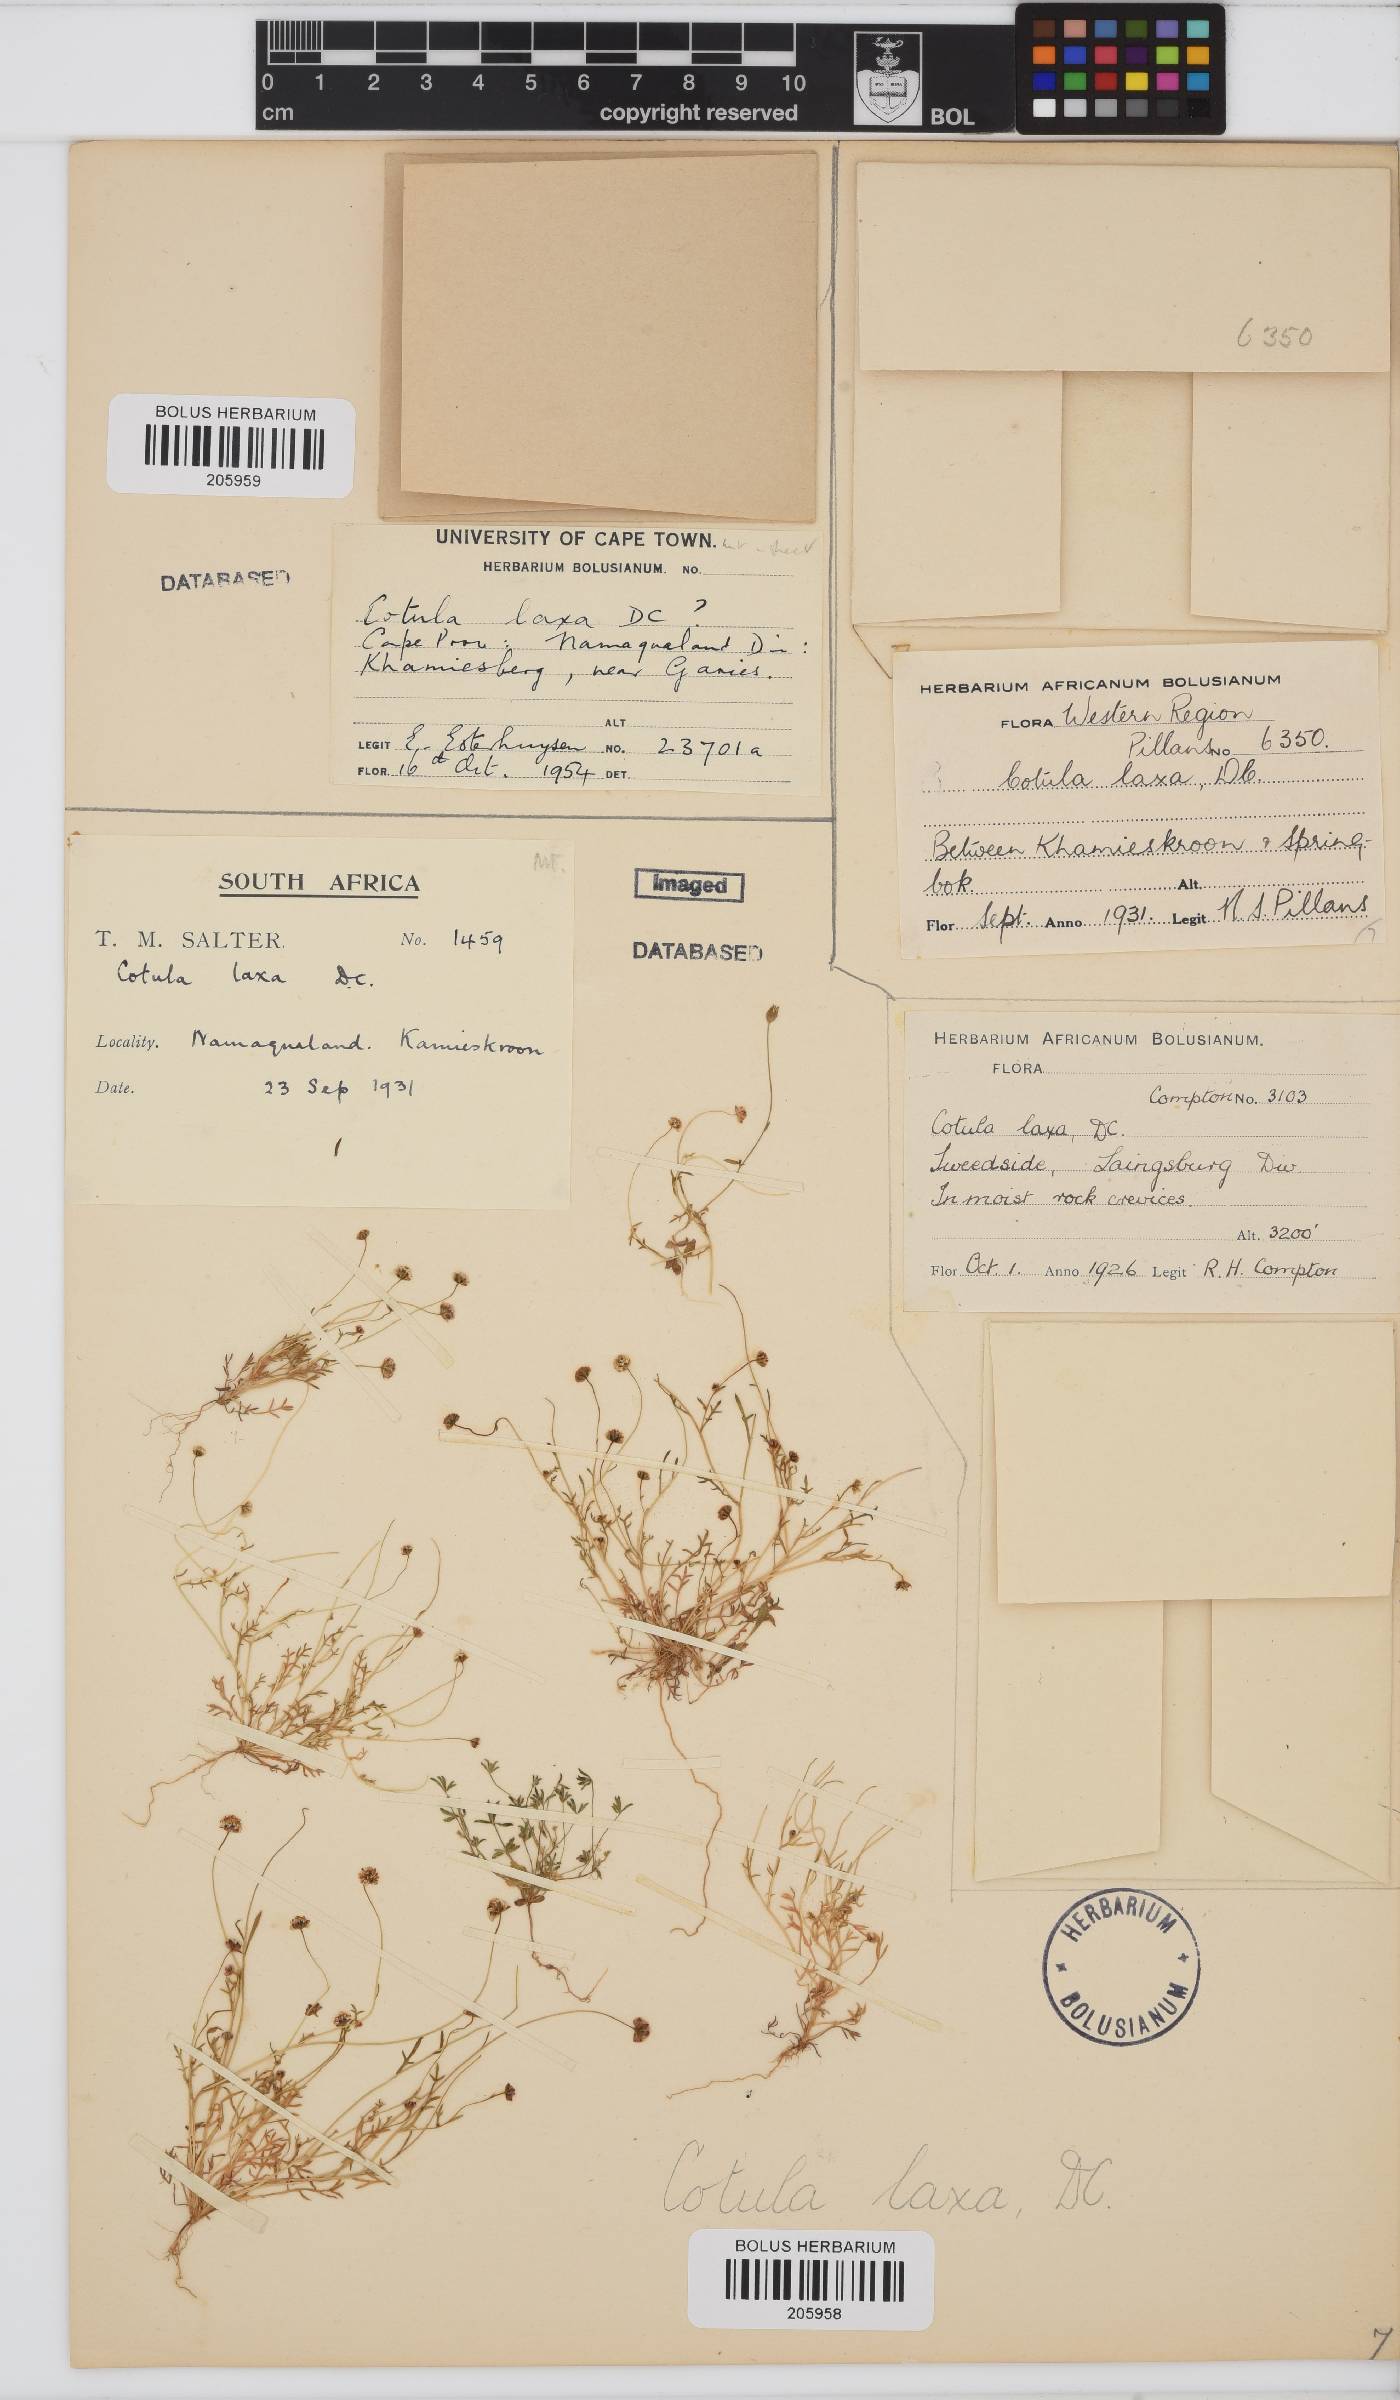 0 1 2 3 4 5 6 7 8 9 10
cm
copyright reserved
BOL
6350
BOLUS HERBARIUM
205959
DATABASED
UNIVERSITY OF CAPE TOWN.
HERBARIUM BOLUSIANUM. NO.
Cotula laxa DC ?
Cape Prov: Namaqualand Div:
Khamiesberg, near Garies.
ALT
LEGIT E. Esterhuysen NO. 23701a
FLOR. 16 Oct. 1954 DET.
HERBARIUM AFRICANUM BOLUSIANUM
FLORA Western Region
Pillans No 6350.
Cotula laxa, DC.
Between Khamieskroon & Spring-
bok. Alt.
Flor Sept. Anno 1931. Legit N. S. Pillans
SOUTH AFRICA
T. M. SALTER. No. 1459
Cotula laxa DC.
Locality. Namaqualand. Kamieskroon
Date. 23 Sep 1931
Imaged
DATABASED
HERBARIUM AFRICANUM BOLUSIANUM.
FLORA
Compton No. 3103
Cotula laxa, DC.
Tweedside, Laingsburg Div
In moist rock crevices.
Alt. 3200'
Flor Oct. 1. Anno 1926 Legit R. H. Compton
HERBARIUM
BOLUSIANUM
Cotula laxa, DC.
BOLUS HERBARIUM
205958
7